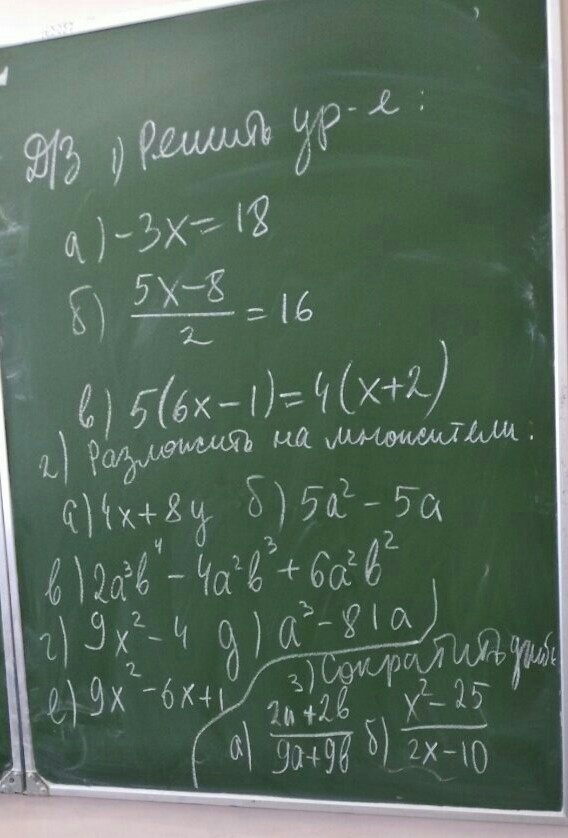 Д/З 1) Решить ур-е:
а) -3x = 18
б) (5x-8)/2 = 16
в) 5(6x-1) = 4(x+2)
2) Разложить на множители:
а) 4x+8y б) 5a² - 5a
в) 2a³b⁴ - 4a²b³ + 6a²b²
г) 9x² - 4 д) a³ - 81a
е) 9x² - 6x + 1
3) Сократить дробь
а) (2a+2b)/(9a+9b) б) (x²-25)/(2x-10)